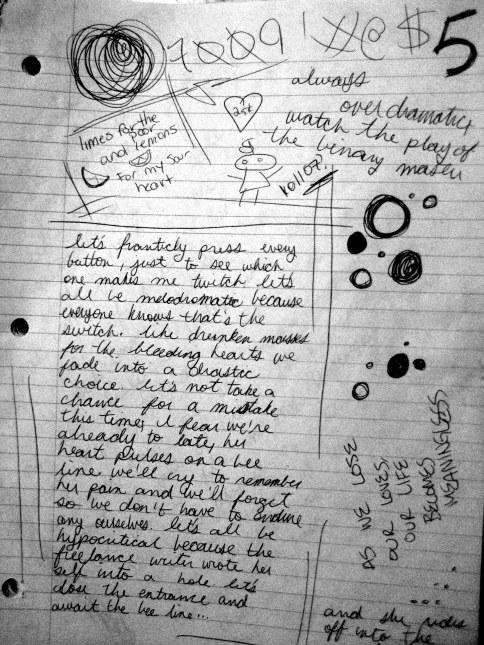 1009!X@$5
always
overdramatic,
watch the play of
the binary
limes for the
poor
and lemons
for my sour
heart
1
2st
10/1/07.
let's franticly press every
button, just to see which
one makes me twitch let's
all be melodramatic because
everyone knows that's the
switch. like drunken
for the bleeding hearts we
fade into a drastic
choice let's not take a
chance for a mistake
this time, i fear we're
already to late, her
heart pulses on a bee
line we'll cry to remember
her pain and we'll forget
so we don't have to endure
any ourselves. let's all be
hypocritical because the
freelance writer wrote her
self into a hole let's
close the entrance and
await the bee line...
AS WE LOSE
OUR LOVES,
OUR LIFE
BECOMES
MEANINGLESS
and she rides
off into the